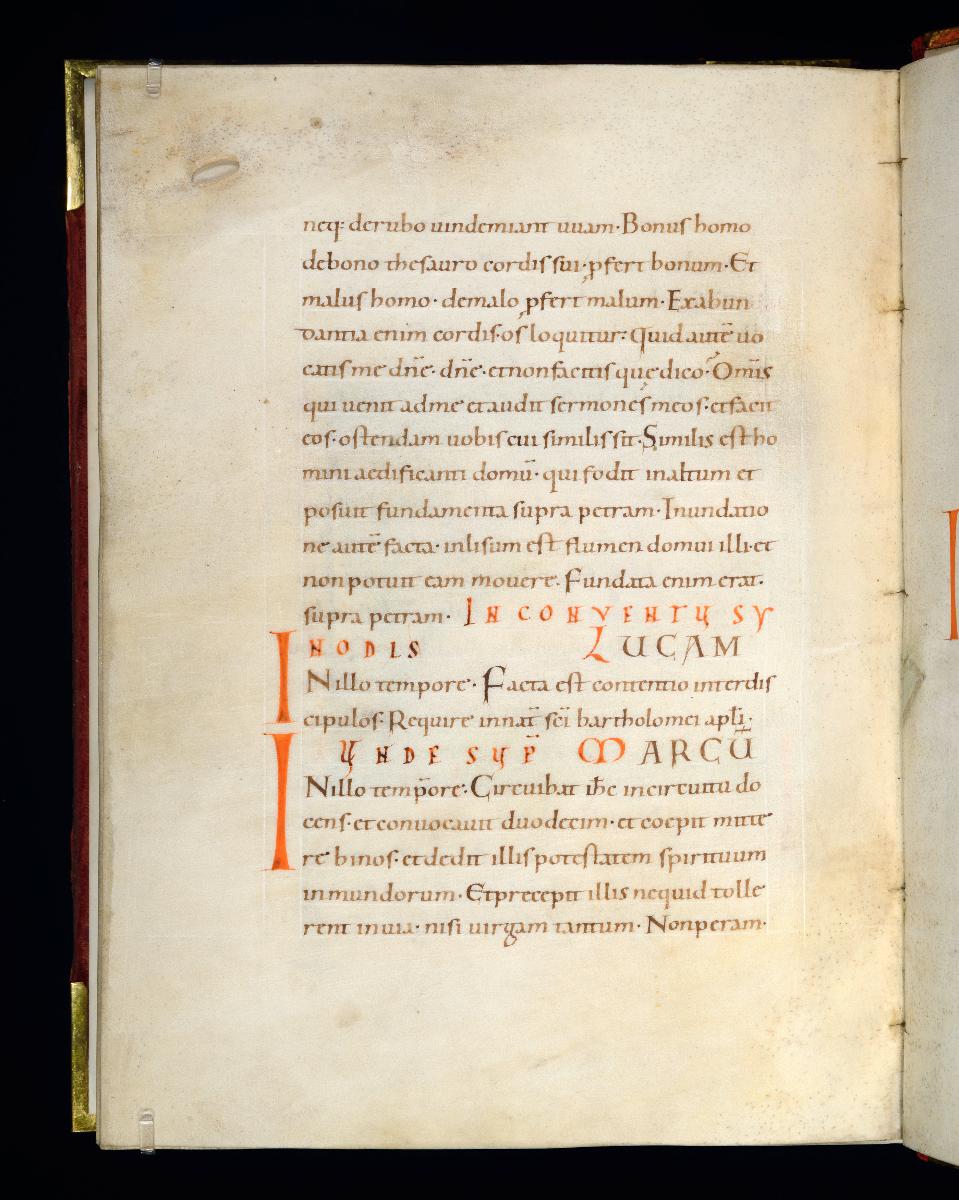 neq: de rubo uindemiant uuam· Bonus homo
de bono thesauro cordis sui· ꝓfert bonum· Et
malus homo· de malo ꝓfert malum· Exabun
dantia enim cordis· os loquitur: Quid autē uo
catis me dñe· dñe· et non facitis quę dico· Om̄is
qui uenit ad me et audit sermones meos· et facit
eos· ostendam uobis cui similis sit· Similis est ho
mini aedificanti domū· qui fodit in altum et
posuit fundamenta supra petram· Inundatio
ne autē facta· inlisum est flumen domui illi· et
non potuit eam mouere· Fundata enim erat·
supra petram· IN CONVENTU SY
NODIS LUCAM
INillo tempore· Facta est contentio inter dis
cipulos· Require in nat̄ sc̄i bartholomei apl̄i·
UNDE SUP̄ MARCŪ
INillo tempore· Circuibat ih̄c in circuitu do
cens· et conuocauit duodecim· et coepit mitte
re binos· et dedit illis potestatem spirituum
inmundorum· Et precepit illis ne quid tolle
rent in uia· nisi uirgam tantum· Non peram·